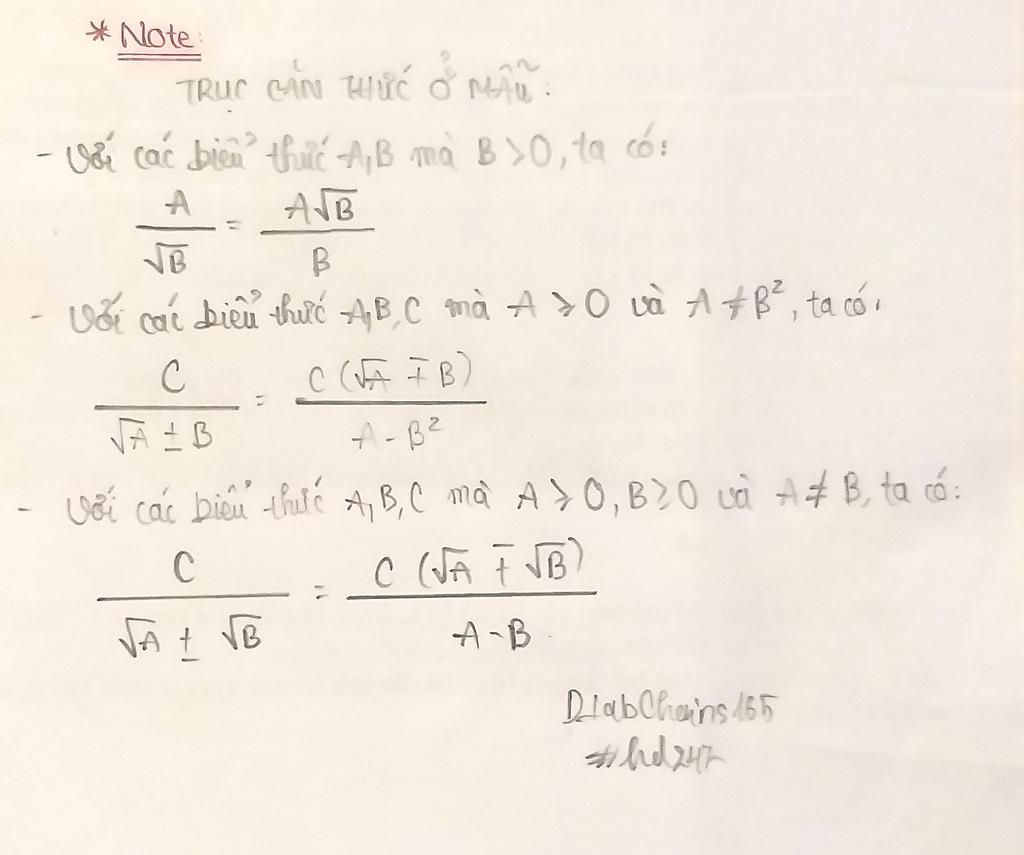 * Note:
TRỤC CĂN THỨC Ở MẪU:
- Với các biểu thức A,B mà B>0, ta có:
A/√B = A√B/B
- Với các biểu thức A,B,C mà A ≥ 0 và A ≠ B², ta có:
C/(√A ± B) = C(√A ∓ B)/(A - B²)
- Với các biểu thức A,B,C mà A ≥ 0, B ≥ 0 và A ≠ B, ta có:
C/(√A ± √B) = C(√A ∓ √B)/(A - B)
DlabChains165
#hd247